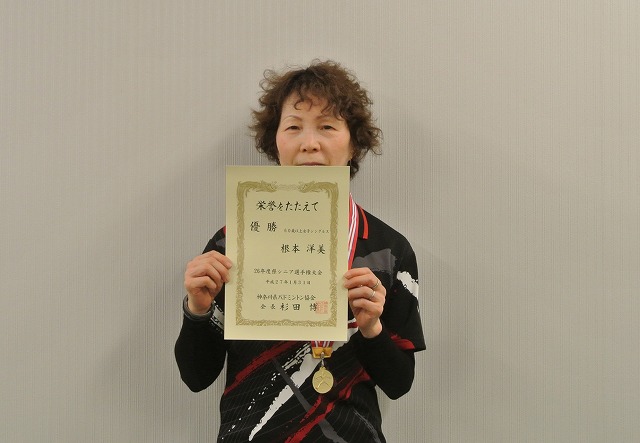 栄誉をたたえて
優勝
根本 洋美
26年度県シニア選手権大会
神奈川県バドミントン協会
会長 杉田 博